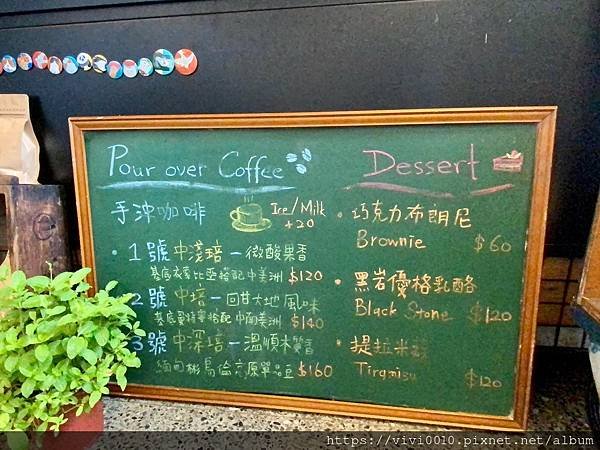 Pour over Coffee
手沖咖啡
Ice/Milk
+20
・1號 中淺培－微酸果香
基底衣索比亞搭配中美洲 $120
2號 中培－回甘大地風味
基底曼特寧搭配中南美洲 $140
3號 中深培－溫順木質香
緬甸彬烏倫高原單品豆 $160
Dessert
・巧克力布朗尼
Brownie $60
・黑岩優格乳酪
Black Stone $120
・提拉米蘇
Tiramisu $120
https://vivi0010.pixnet.net/album